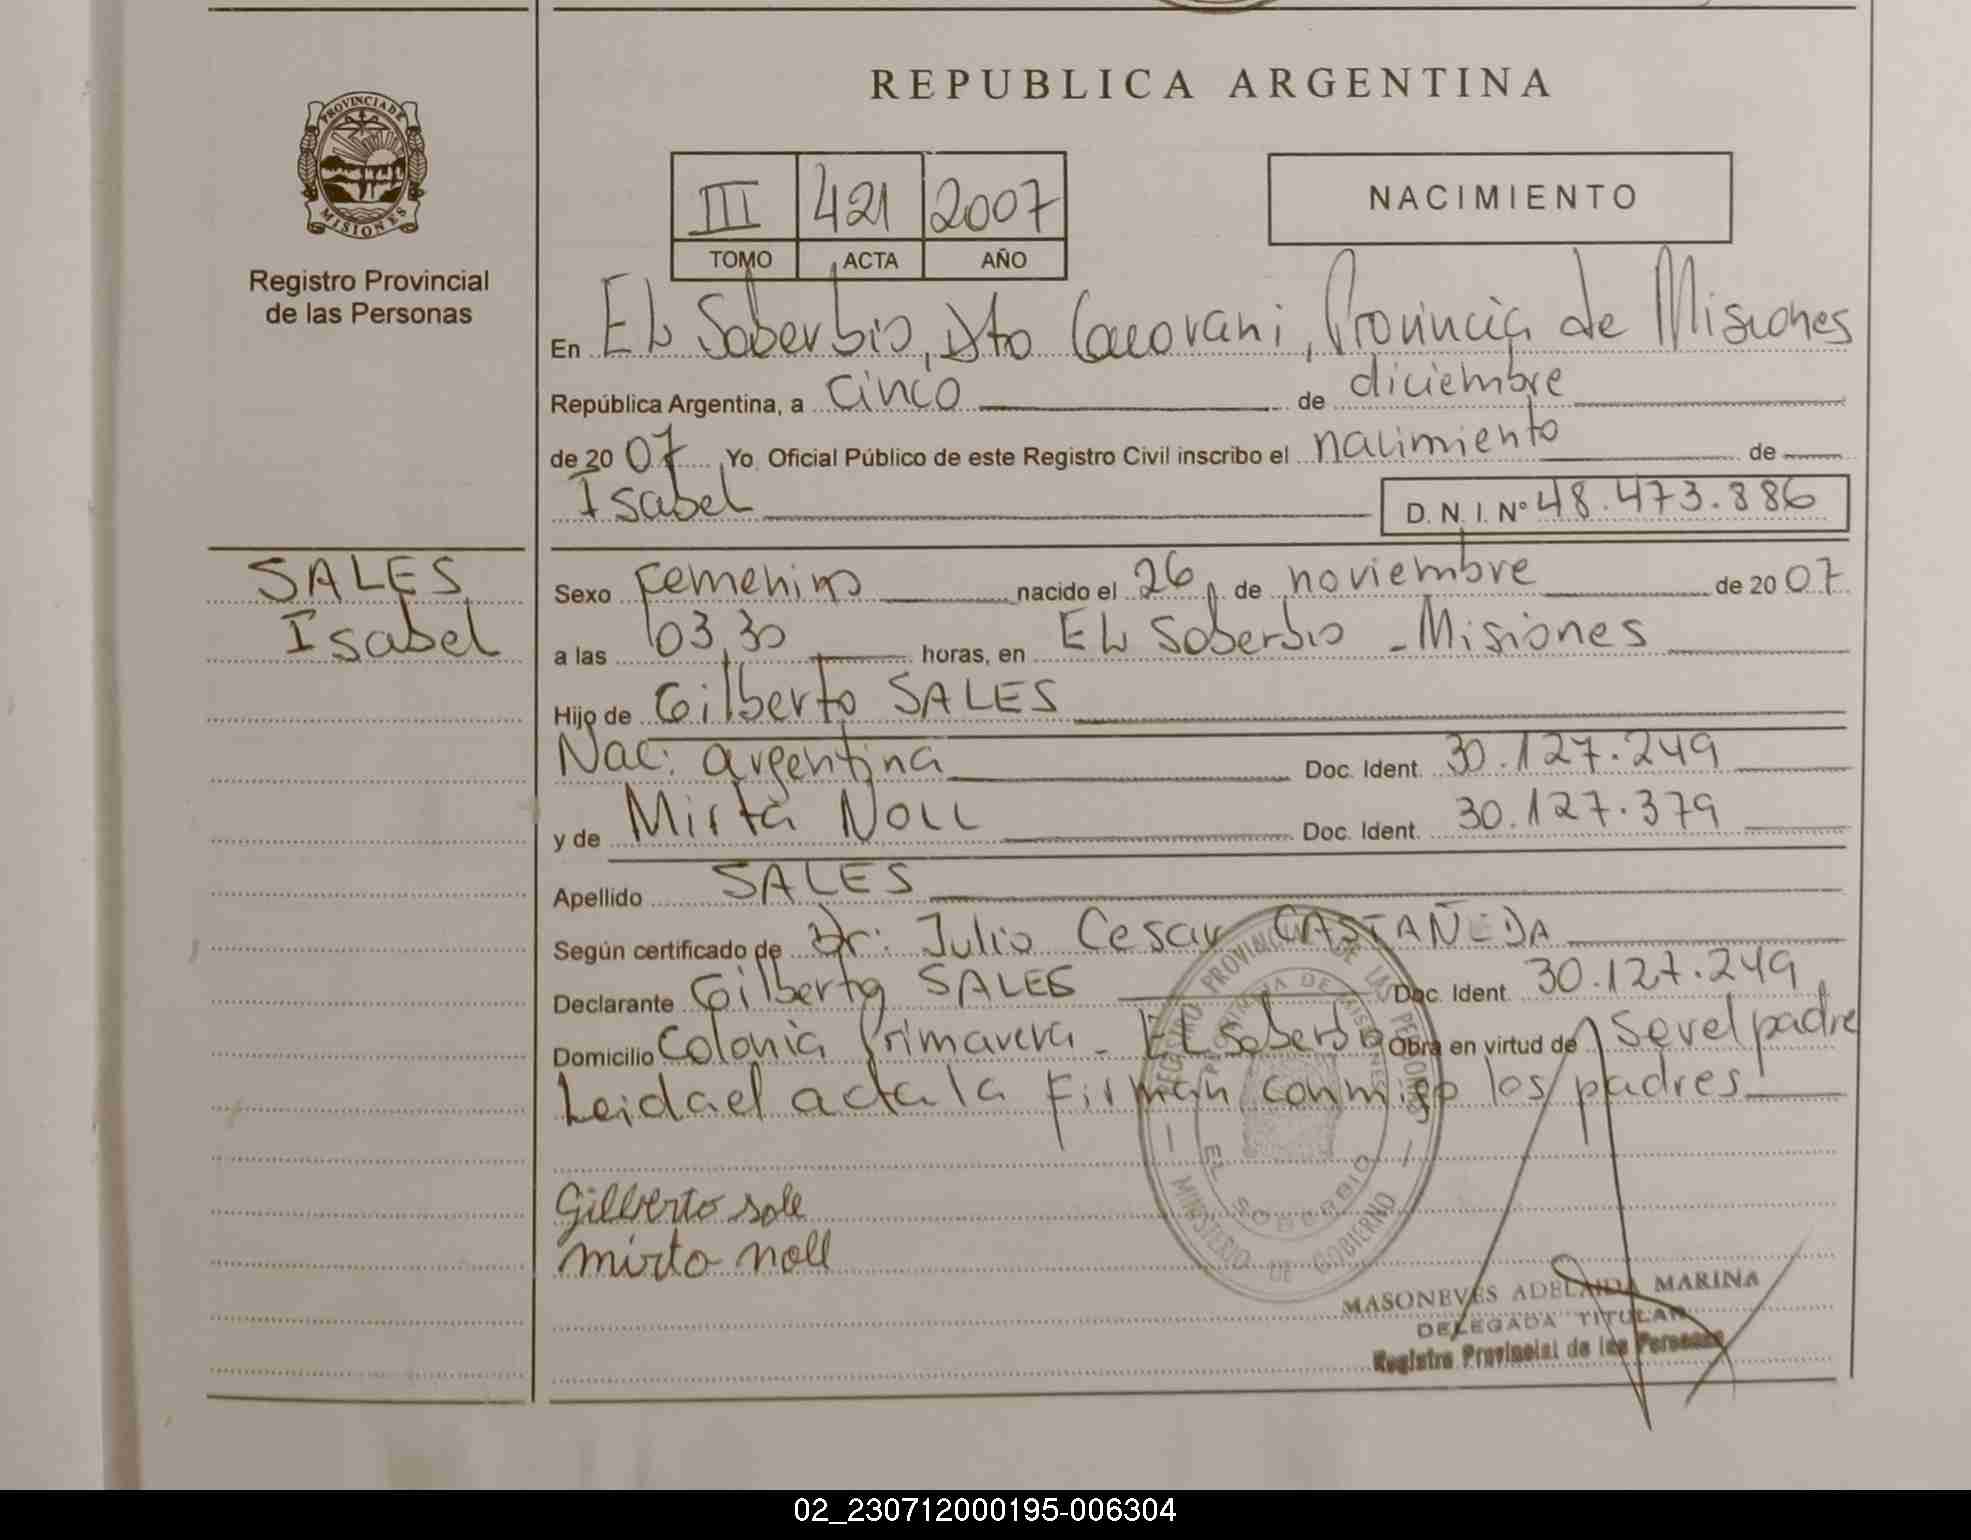 REPUBLICA ARGENTINA
PROVINCIA DE MISIONES
Registro Provincial
de las Personas
III 421 2007
TOMO ACTA AÑO
NACIMIENTO
En EL Soberbio, Dto Guarani, Provincia de Misiones
República Argentina, a cinco de diciembre
de 2007 Yo Oficial Público de este Registro Civil inscribo el nacimiento de
Isabel D. N. I. Nº 48.473.886
SALES
Isabel
Sexo Femenino nacido el 26 de noviembre de 2007
a las 03,30 horas, en EL Soberbio - Misiones
Hijo de Gilberto SALES
Nac: argentina Doc. Ident. 30.127.249
y de Mirta NOLL Doc. Ident. 30.127.379
Apellido SALES
Según certificado de Dr: Julio Cesar CASTAÑEDA
Declarante Gilberto SALES Doc. Ident. 30.127.249
Domicilio Colonia Primavera - EL Soberbio Obra en virtud de Ser el padre
Leida el acta la Firman conmigo los padres
Gilberto sale
mirta noll
REGISTRO PROVINCIAL DE LAS PERSONAS
PROVINCIA DE MISIONES
EL SOBERBIO
MINISTERIO DE GOBIERNO
MASONEVES ADELAIDA MARINA
DELEGADA TITULAR
Registro Provincial de las Personas
02_230712000195-006304